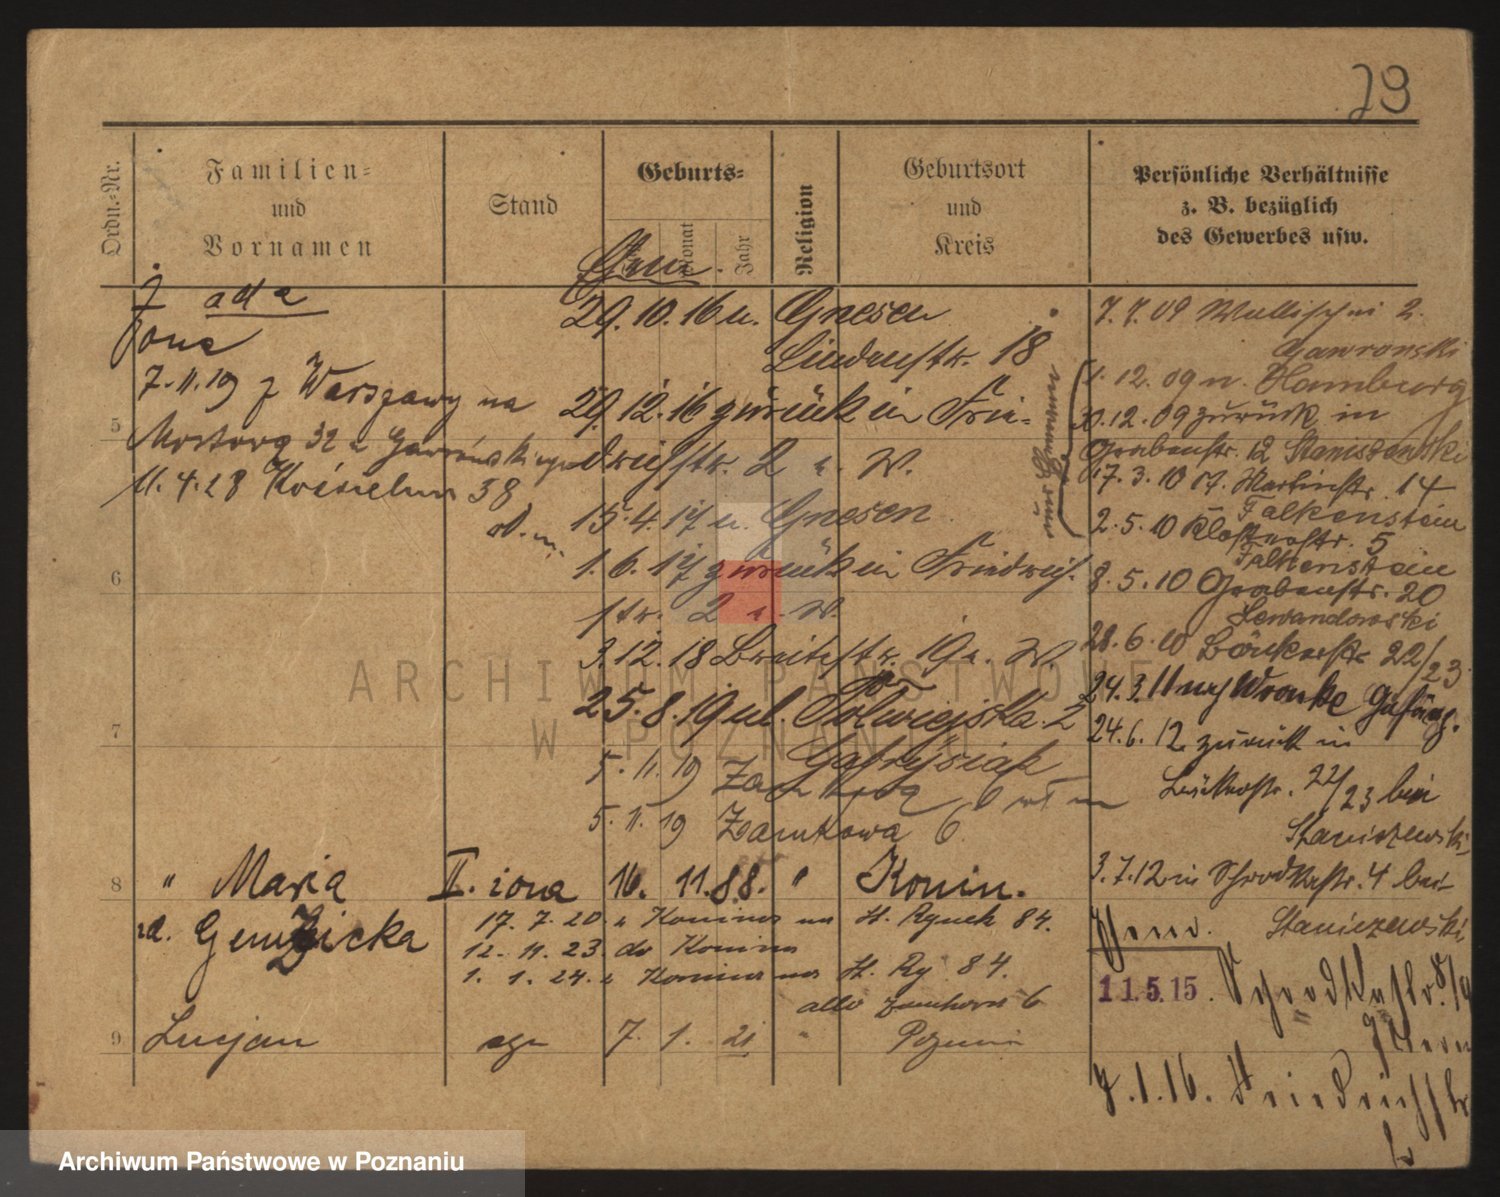 29
Ordn.-Nr.
Familien-
und
Vornamen
Stand
Geburts-
Monat
Jahr
Religion
Geburtsort
und
Kreis
Persönliche Verhältnisse
z. B. bezüglich
des Gewerbes usw.
7.-11.19 z Warszawy na
11.4.28
29.10.16 n. Gnesen
Lindenstr. 18
29.12.16 zurück in Frie-
drichstr. 2 n. W.
15.4.17 n. Gnesen
1.6.17 zurück in Friedrich-
str. 2 n. W.
3.12.18 Breitestr. 19 n. W.
25.8.19 ul. Półwiejska 2
5.11.19
5.11.19 Zamkowa 6
7.7.09 Wallischei 2.
Gawronski
1.12.09 n. Hamburg
30.12.09 zurück in
Grabenstr. 12 Staniszewski
17.3.10 St. Martinstr. 14
Falkenstein
2.5.10 Klosterstr. 5
Falkenstein
8.5.10 Grabenstr. 20
Lewandowski
28.6.10 Bäckerstr. 22/23
24.3.11 nach Wronke Gefäng.
24.6.12 zurück in
Bäckerstr. 22/23 bei
Staniszewski
3.7.12 in Schrodkastr. 4 bei
Staniszewski
11.5.15. Schrodkastr. 8/9
7.1.16. Friedrichstr
2
5
6
7
8
" Maria II. żona 16. 11. 88. " Konin.
17. 7. 20. z Konina na St. Rynek 84.
12. 11. 23. do Konina
1. 1. 24. z Konina na St. Ry 84.
9
Lucjan syn 7. 1. 21 "
ARCHIWUM PAŃSTWOWE
W POZNANIU
Archiwum Państwowe w Poznaniu